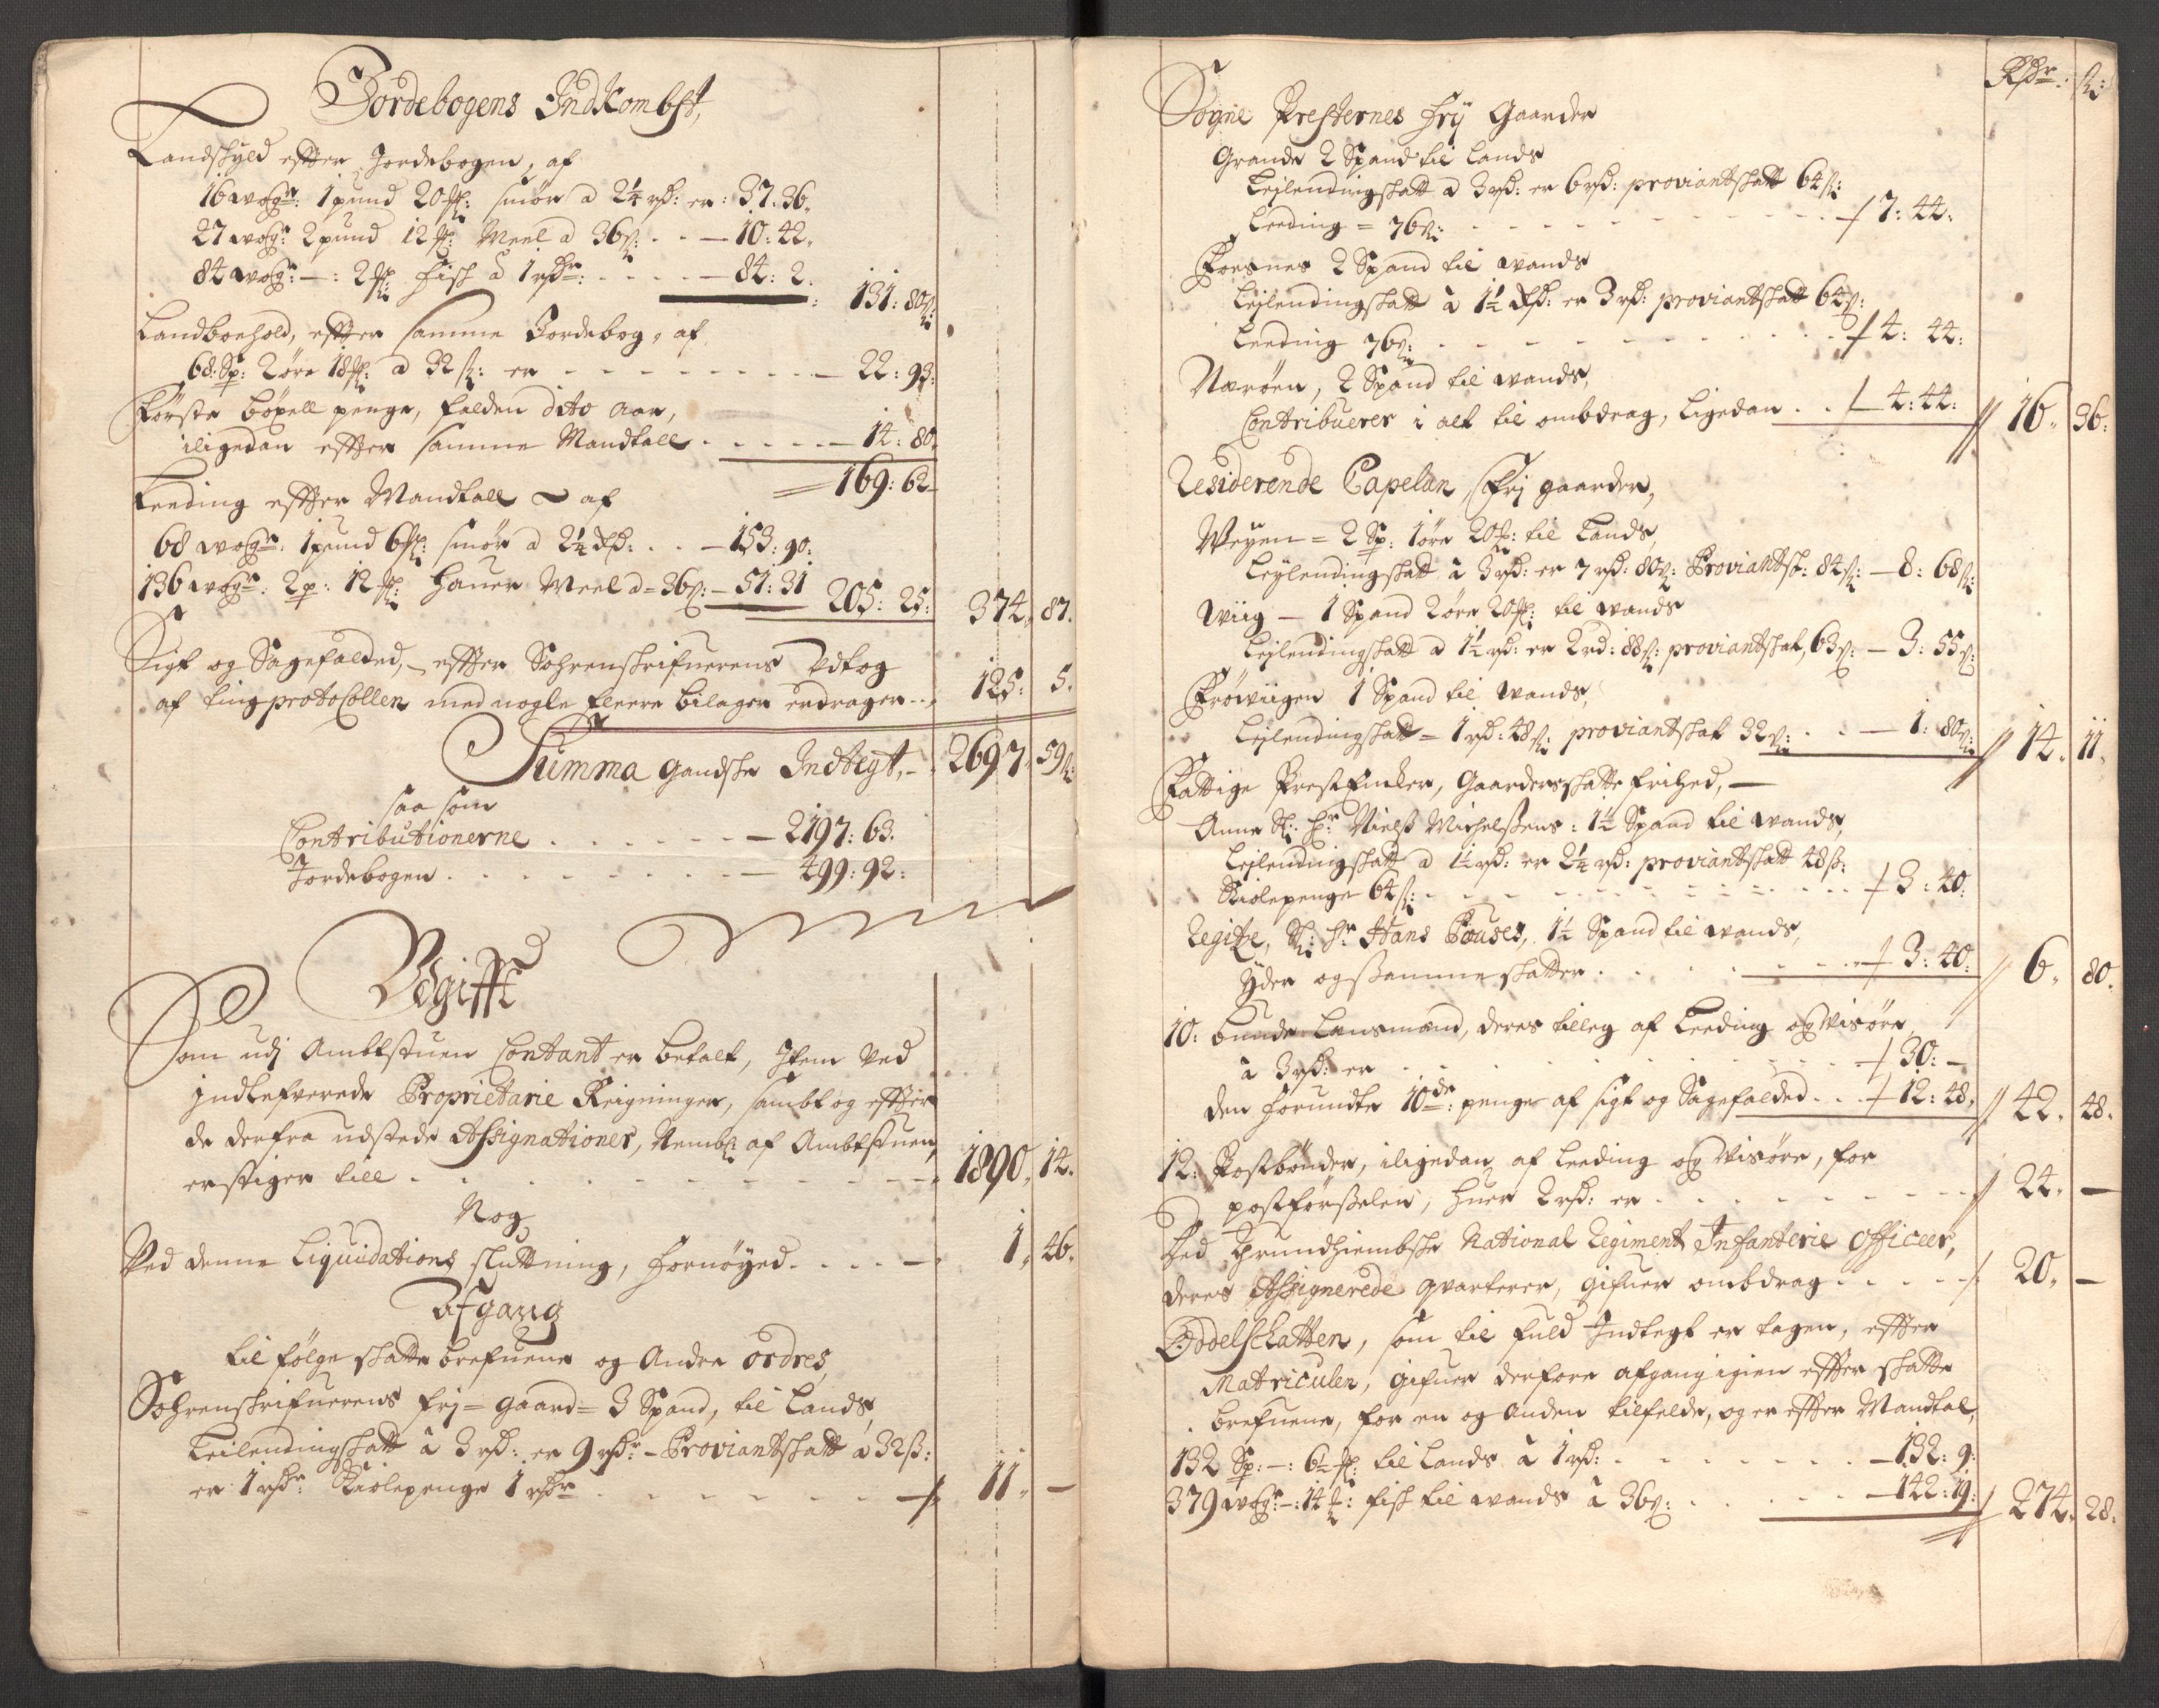 Jordebogens Indkombst,
Landskyld effter Jordebogen, af
16 wog: 1 pund 20 ℔: smør a 2¼ rd: er: 37. 36.
27 wog: 2 pund 12 ℔: Meel a 36 ß: . . — 10: 42.
84 wog: —: 2 ℔: fisk à 1 rdr: . . . . — 84: 2. 131: 80 ß:
Landboehold, effter samme Jordebog, af
68: Sp: 2 øre 18 ℔: a 32 ß: er - - - - - - - — 22: 93:
Første bøxell penge, falden dito Aar,
iligedan effter samme Mandtall . . . . . — 14: 80.
169: 62
Leeding effter Mandtall ~ af
68 wog: 1 pund 6 ℔: smør a 2¼ rd: . . — 153: 90:
136 wog: 2 p: 12 ℔: Hauer Meel a 36 ß: — 51: 31 205: 25: 374. 87.
Sigt og Sagefalded, effter Sohrenskrifuerens Udtog
af tingprotocollen med nogle fleere bilager erdrager . . 125: 5.
Summa gandske Indtegt, — 2697. 59 ß:
saa som
Contributionerne . . . . . . — 2197: 63.
Jordebogen . . . . . . . . — 499: 92:
Udgifft
Som udj Ambtstuen Contant er betalt, Item ved
Indlefverede Proprietarie Reigninger, sambt og effter
de derfra udstede Assignationer, Nembl: af Ambtstuen,
erstiger till . . . . . . . . . . 1890. 14.
Nog
Ved denne Liquidations sluttning, fornøyed . . . . — 1. 46.
Afgang
til følge skatte brefuene og Andre ordres,
Sohrenskrifuerens frj = gaard = 3 Spand, til Lands,
Leilendingskatt à 3 rd: er 9 rdr — Proviantskatt à 32 ß:
er 1 rdr: Kiolepenge 1 rdr . . . . . . . 11. —
Rdr. ß:
Sogne Presternes frj Gaarder
Grande 2 Spand til Lands
Lejlendingskatt a 3 rd: er 6 rd: proviantskatt 64 ß:
Leeding = 76 ß: . . . . . . . . . 7: 44.
Foesnes 2 Spand til wands
Lejlendingskatt à 1½ Rd: er 3 rd: proviantskatt 64 ß:
Leeding 76 ß: . . . . . . . . . . 4: 44:
Nærøen, 2 Spand til wands,
Contribuerer i alt til ombdrag, ligedan . . 4: 44: 16. 36:
Residerende Capelan, frj gaarder,
Weyem = 2 Sp: 1 øre 20 ℔: til Lands,
Leylendingskatt à 3 rd: er 7 rd: 80 ß: Proviantsk: 84 ß: — 8: 68 ß:
Wiig — 1 Spand 2 øre 20 ℔: til wands
Lejlendingskatt a 1½ rd: er 2 rd: 88 ß: proviantskat, 63 ß: — 3: 55 ß:
Frøwiigen 1 Spand til wands,
Lejlendingskatt = 1 rd: 48 ß: proviantskat 32 ß: . . — 1: 80 ß: 14. 11.
Fattige Prestencker, Gaarders skattefrihed, —
Anna Sl: Hr Nielß Michelßens: 1½ Spand til wands,
Lejlendingskatt a 1½ rd: er 2¼ rd: proviantskatt 48 ß:
Kiolepenge 64 ß: . . . . . . . . . 3: 40:
Zegitze, Sl: Hr Hans Pouses, 1½ Spand til wands,
Yder og samme skatter . . . . . . . . 3: 40: 6. 80.
10: bunde Lensmænd, deres tilleg af Leeding og Wisøre,
à 3 rd: er . . . . . . . . . . . 30: —
den forundte 10de: penge af sigt og Sagefalded . . . 12: 48. 42. 48.
12: Postbønder, iligedan af Leeding og Wisøre, for
postførßelen, huer 2 rd: er . . . . . . . . 24. —
Ved Thrundhiembske National Regiment Infanterie Officeer,
deres Assignerede qvarterer, gifuer ombdrag . . . . . 20. —
Oddelschatten, som til fuld Indtegt er tagen, effter
Matriculen, gifuer derfore afgang igien effter skatte
brefuene, for en og Anden tilfelde, og er effter Mandtal,
132 Sp: —: 6½ ℔: til Lands à 1 rd: . . . . . . . — 132: 9:
379 wog: —: 14 ℔: fisk til wands à 36 ß: . . . . . — 142: 19: 274. 28: